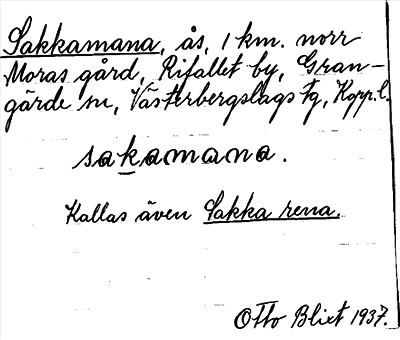 Sakkamana, ås, 1 km. norr
Moras gård, Rifallet by, Gran-
gärde sn, Västerbergslags tg, Kopp. l.
sakamana.
Kallas även Sakka rena.
Otto Blixt 1937.